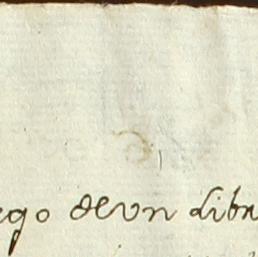 ego de un Libr